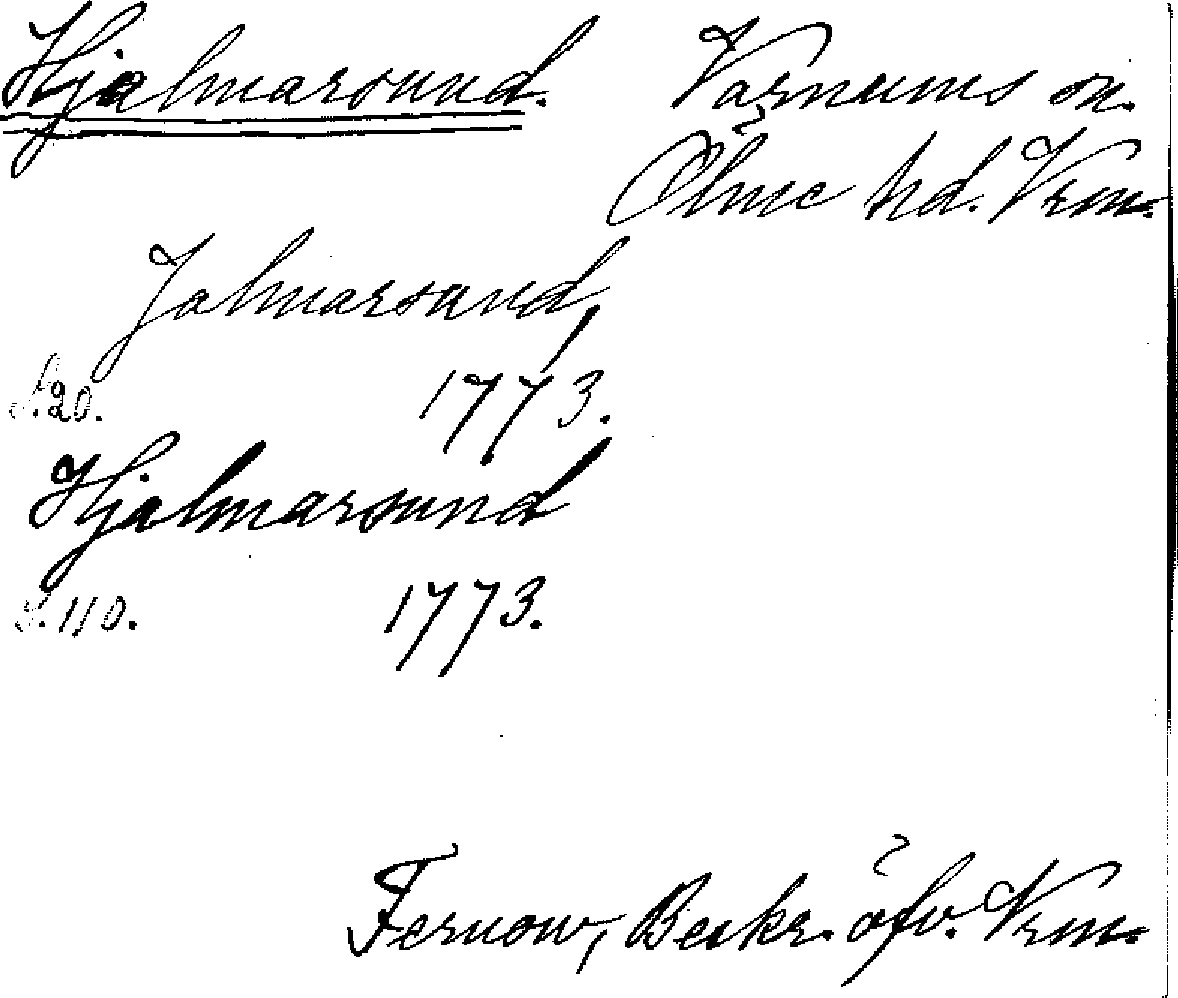 Hjalmarsund. Varnums sn.
Ölme hd. Vrm.
Jalmarsund,
S. 20. 1773.
Hjalmarsund
S. 110. 1773.
Fernow, Beskr. öfv. Vrm.